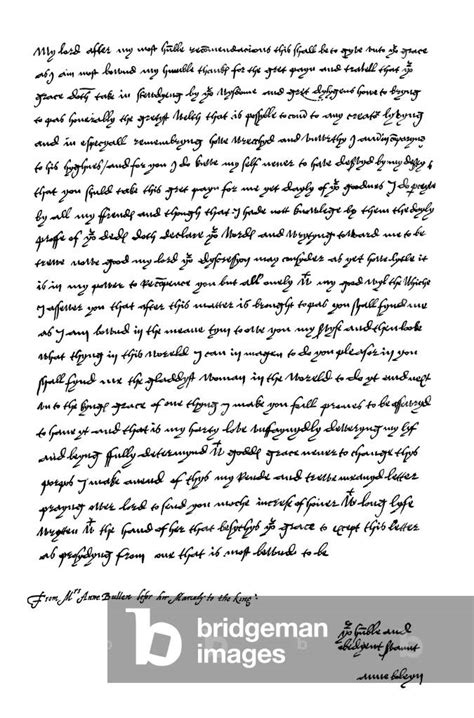 My lord after my most humble recomendacions this shall be to gyve unto yr grace
as I am most bownd my humble thanks for the gret payn and travell that yr
grace doth take in stewdyeng by yr wysdome and gret dylygens howe to bryng
to pas honerably the gretyst welth that is possyble to com to any creatour lyving
and in especyall remembryng howe wrecchyd and unworthy I am in comparyng
to his hyghnes / and for you I do knowe my self never to have deservyd by my deserts
that you shuld take this gret payn for me yet dayly of yr goodnes I do perceyve
by all my frends and though that I hade nott knowlege by them the dayly
proffe of yr deds doth declare yr words and wrytyng toward me to be
trewe nowe good my lord yr dyscressyon may consider as yet howe lytle it
is in my power to recompence you but all onely wt my good wyl the whiche
I assewer you that after this matter is brought to pas you shall fynd me
as I am bownd in the meane tym to owe you my servyse and then looke
what thyng in this woreld I can inmagen to do you pleasor in you
shall fynd me the gladdyst woman in the woreld to do yt and next
unto the kyngs grace of one thyng I make you full promes to be assewryd
to have yt and that is my harty love unfaynydly deweryng my lyf
and beyng fully determynd wt godds grace never to change thys
porpos I make an end of thys my reude and trewe meanyd letter
praying ower lord to send you moche increse of honer wt long lyfe
wrytten wt the hand of her that besychys yr grace to except this letter
as prosydyng from one that is most bownde to be
From Mrs Anne Bullen befor her Mariely to the King.
yr humble and
obedyent servant
anne boleyn
b bridgeman images